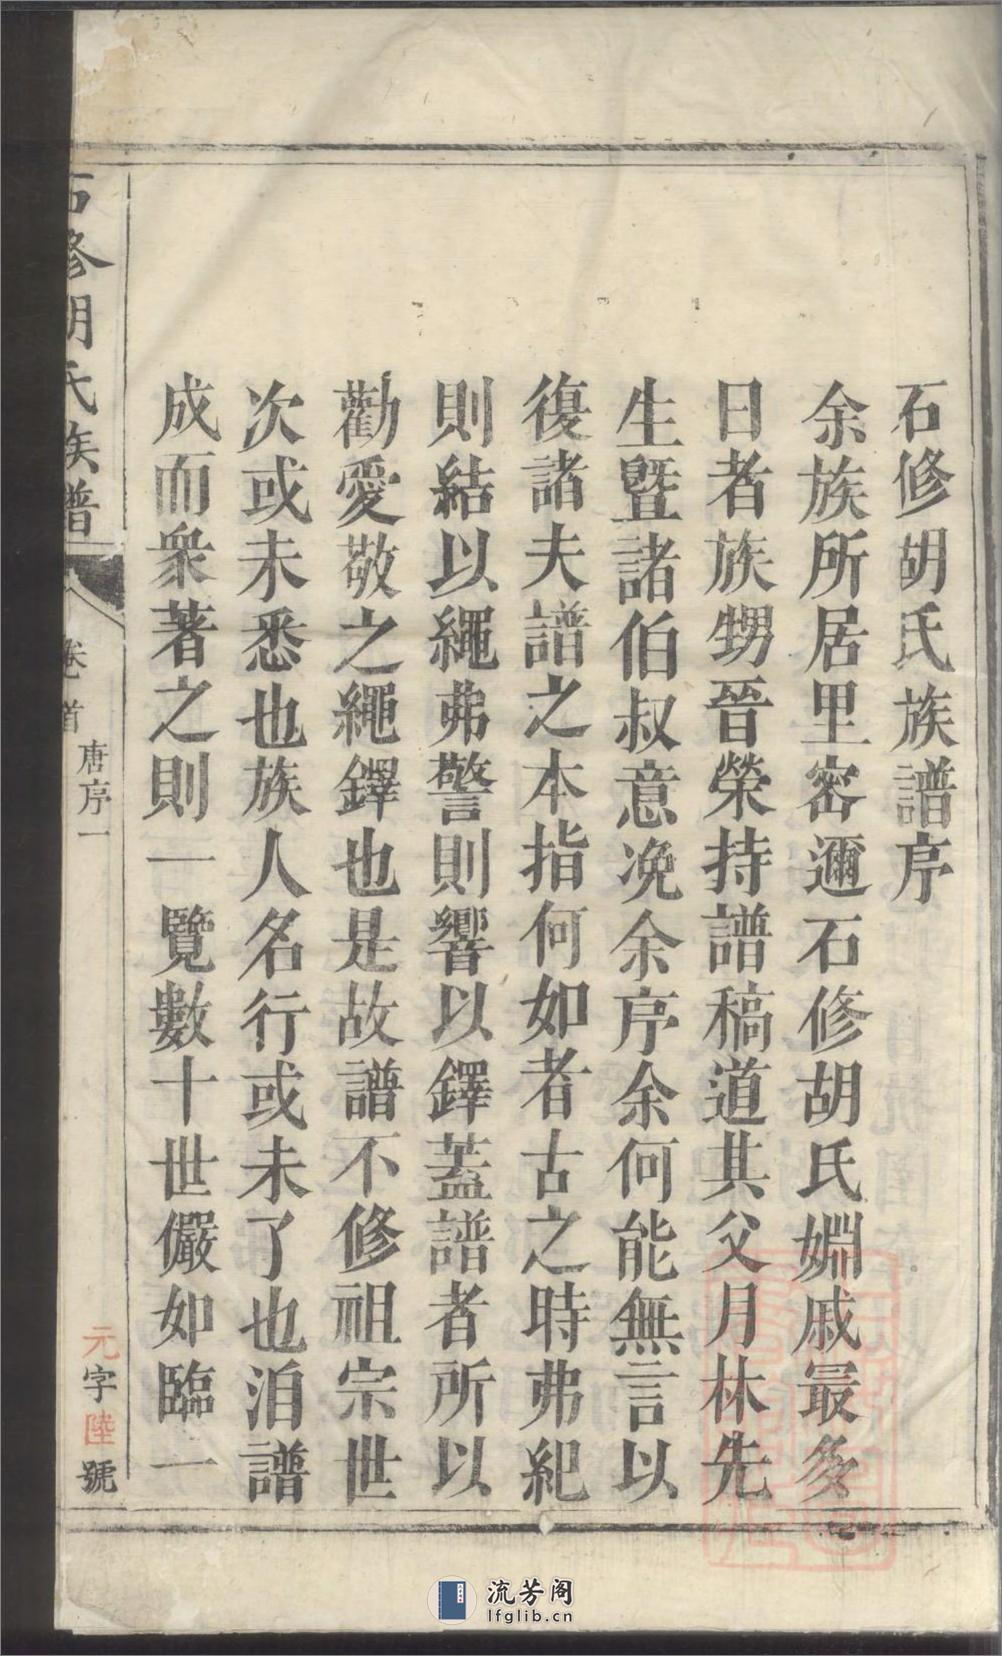 石修胡氏族譜序
余族所居里密邇石修胡氏婣戚最多
日者族甥晉榮持譜稿道其父月林先
生暨諸伯叔意浼余序余何能無言以
復諸夫譜之本指何如者古之時弗紀
則結以繩弗警則響以鐸蓋譜者所以
勸愛敬之繩鐸也是故譜不修祖宗世
次或未悉也族人名行或未了也洎譜
成而衆著之則一覽數十世儼如臨一
石修胡氏族譜
卷首
唐序一
元字陸號
流芳阁
lfglib.cn